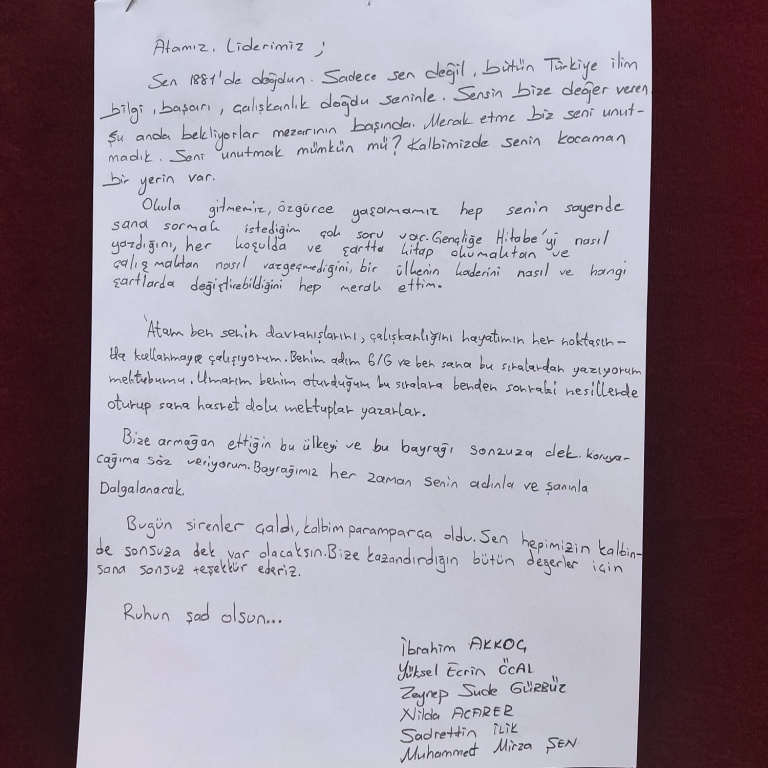 Atamız, Liderimiz ;
Sen 1881'de doğdun. Sadece sen değil, bütün Türkiye ilim
bilgi, başarı, çalışkanlık doğdu seninle. Sensin bize değer veren.
Şu anda bekliyorlar mezarının başında. Merak etme biz seni unut-
madık. Seni unutmak mümkün mü? Kalbimizde senin kocaman
bir yerin var.
Okula gitmemiz, özgürce yaşamamız hep senin sayende
sana sormak istediğim çok soru var. Gençliğe Hitabe'yi nasıl
yazdığını, her koşulda ve şartta kitap okumaktan ve
çalışmaktan nasıl vazgeçmediğini, bir ülkenin kaderini nasıl ve hangi
şartlarda değiştirebildiğini hep merak ettim.
Atam ben senin davranışlarını, çalışkanlığını hayatımın her noktasın-
da kullanmaya çalışıyorum. Benim adım 6/G ve ben sana bu sıralardan yazıyorum
mektubumu. Umarım benim oturduğum bu sıralara benden sonraki nesillerde
oturup sana hasret dolu mektuplar yazarlar.
Bize armağan ettiğin bu ülkeyi ve bu bayrağı sonzuza dek koruya-
cağıma söz veriyorum. Bayrağımız her zaman senin adınla ve şanınla
Dalgalanacak.
Bugün sirenler çaldı, kalbim paramparça oldu. Sen hepimizin kalbin-
de sonsuza dek var olacaksın. Bize kazandırdığın bütün değerler için
sana sonsuz teşektür ederiz.
Ruhun şad olsun...
İbrahim AKKOÇ
Yüksel Ecrin ÖCAL
Zeynep Sude GÜRBÜZ
Nilda ACARER
Sadrettin İLİK
Muhammed Mirza ŞEN